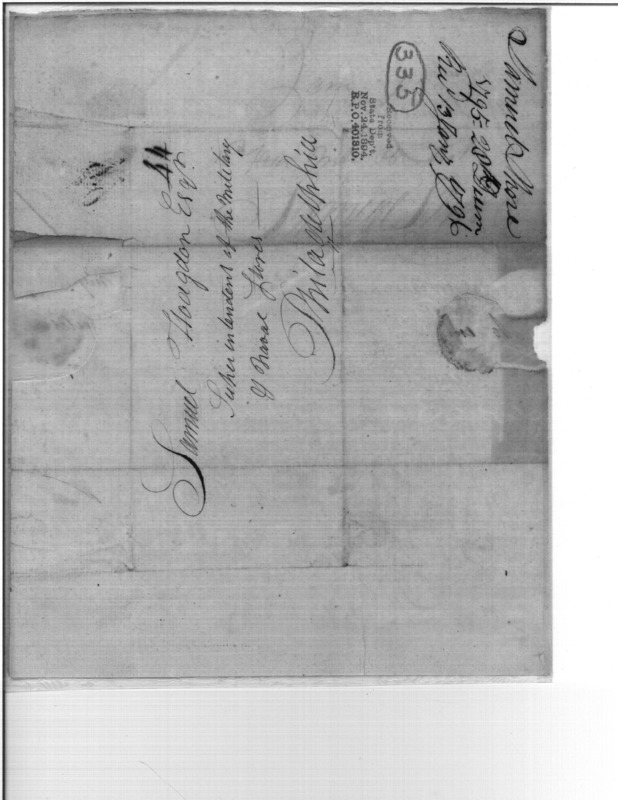 Samuel
1795 28
Recd 13 Jany 1796
335
Received
from
State Dep't.
Nov. 24, 1894.
R.P.O. 401810.
44
Samuel Hodgdon Esqr
Superintendent of the Military
& Naval Stores
Philadelphia